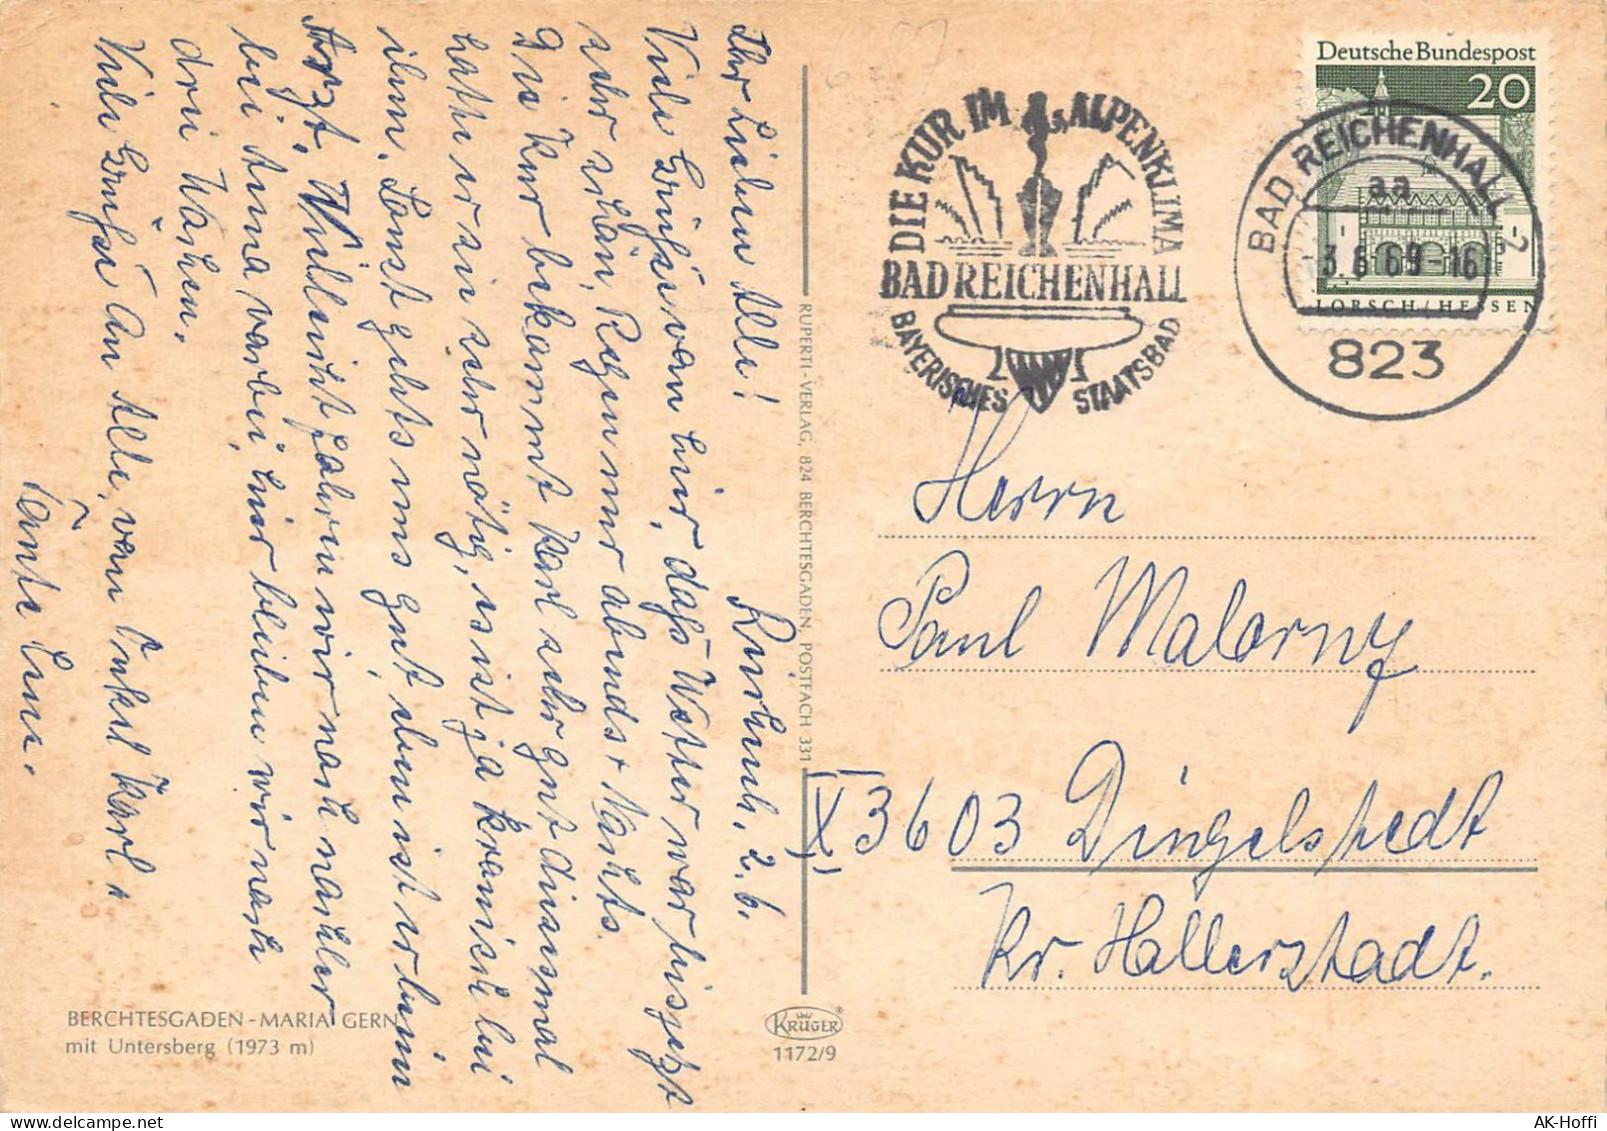 Ihr Lieben Alle! Reichenh. 2.6.
Viele Grüße von hier, daß Wetter war bis jetzt
sehr schön, Regen nur abends + Nachts.
Die Kur bekommt Karl sehr gut diesmal
hatte er sie sehr nötig, es ist ja kranisch bei
ihm. Sonst gehts uns gut, eben ist er beim
Arzt. Vielleicht fahren wir nach nachher
bei Anna vorbei, hier bleiben wir noch
drei Wochen.
Viele Grüße an Alle, von Onkel Karl +
Tante Lene.
BERCHTESGADEN - MARIA GERN
mit Untersberg (1973 m)
RUPERTI-VERLAG, 824 BERCHTESGADEN, POSTFACH 331
KRÜGER
1172/9
DIE KUR IM ALPENKLIMA
BAD REICHENHALL
BAYERISCHES STAATSBAD
Deutsche Bundespost
20
LORSCH / HESSEN
BAD REICHENHALL 2
aa
-3.6.69-16
823
Herrn
Paul Malorny
X 3603 Dingelstedt
Kr. Halberstadt.
AK-Hoffi